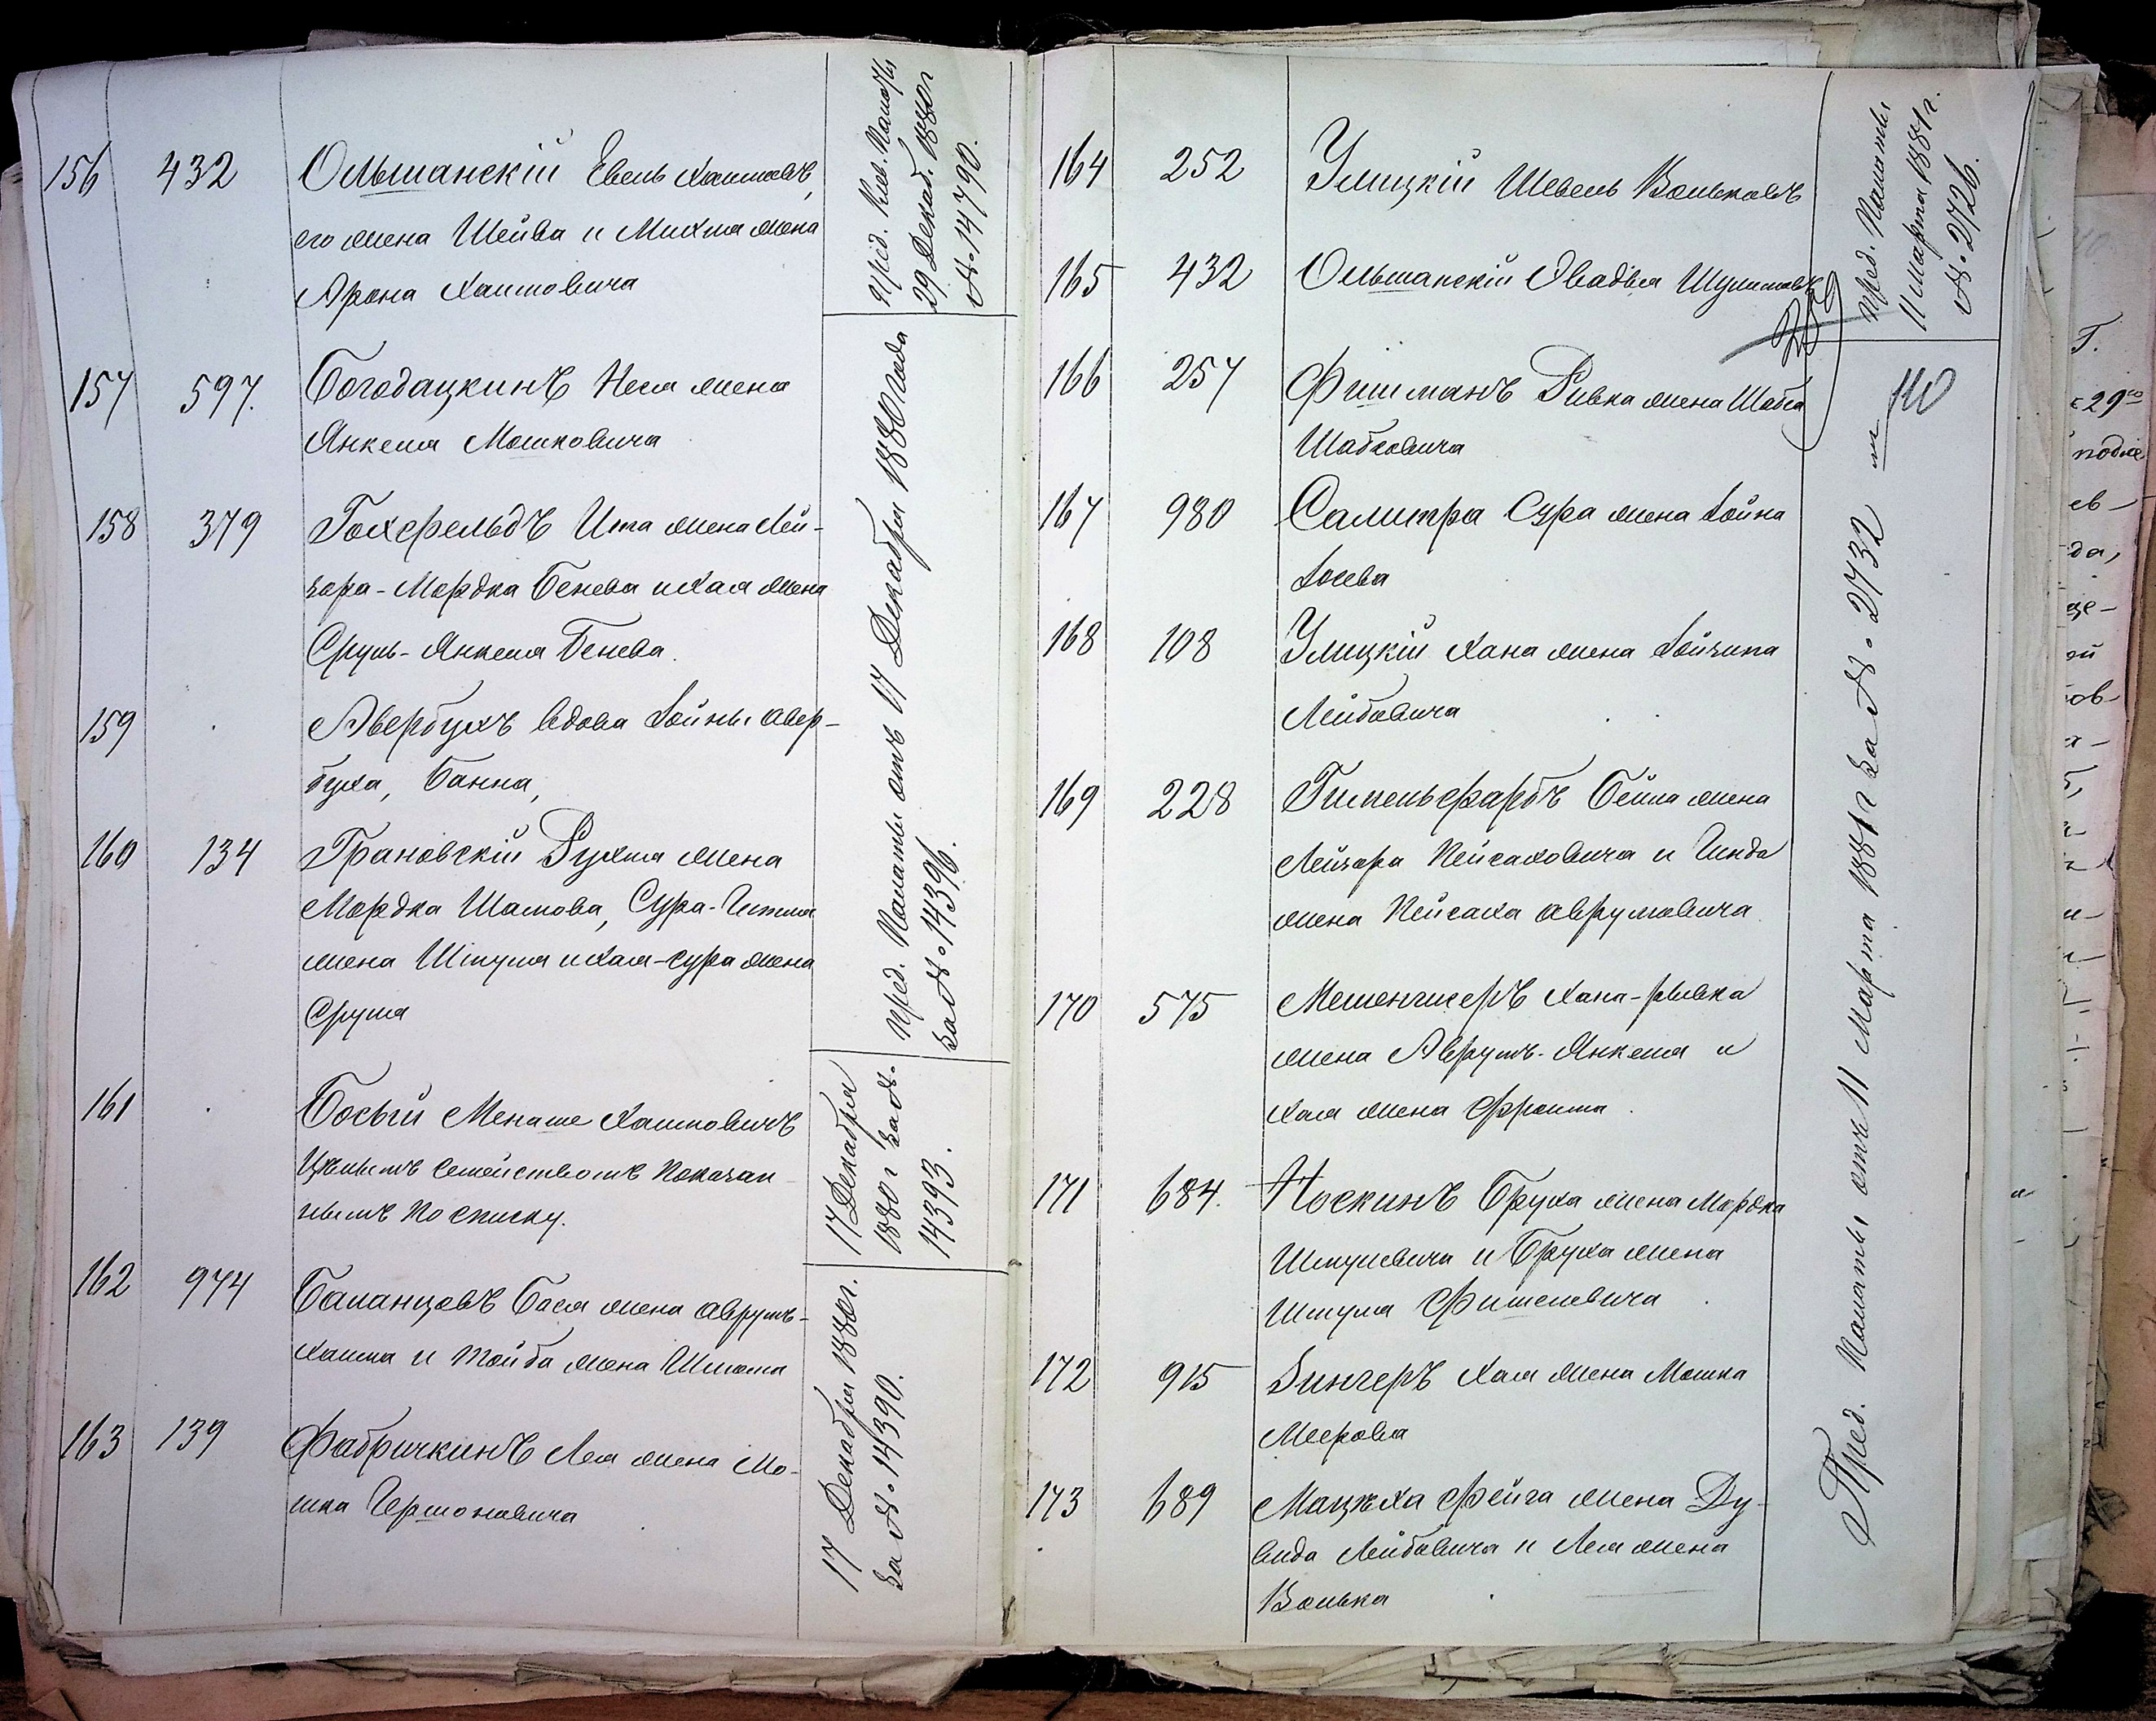 156 432 Ольшанскій Евель Хаимовъ,
его жена Шейва и Михля жена
Арона Хаимовича
Пред. Кіев. Палаты
29 Декаб. 1880 г
№ 14790.
157 597. Богодацкинъ Неся жена
Янкеля Мошковича
158 379 Гохфельдъ Ита жена Лей-
зора-Мордка Бенева и Хая жена
Сруль-Янкеля Бенева.
159 Авербухъ вдова Зойны Авер-
буха, Банна,
160 134 Грановскій Рухля жена
Мордка Шамова, Сура-Гитля
жена Шмуля и Хая-Сура жена
Сруля
Пред. Палаты отъ 17 Декабря 1880 года
за № 14396.
161 Босый Менаше Хаимовичъ
Цѣлымъ семействомъ показан-
нымъ по списку.
17 Декабря
1880 г за №
14393.
162 974 Баланцовъ Бася жена Аврумъ-
Хаима и Тойба жена Шлиома
163 139 Фабричкинъ Лея жена Мо-
шка Гершоновича
17 Декабря 1880 г.
за № 14390.
164 252 Улицкій Шевель Вольковъ
165 432 Ольшанскій Овадья Шулимовъ
Пред. Палаты
11 Марта 1881 г.
№ 2726.
166 257 Фишманъ Ривка жена Шабса
Шабсовича
167 980 Салитра Сура жена Зойна
Зосева
168 108 Улицкій Хана жена Зойзипа
Лейбовича
169 228 Гимельфарбъ Бейла жена
Лейзора Пейсаховича и Гинда
жена Пейсаха Аврумовича
170 575 Мешенгисеръ Хана-Рывка
жена Аврумъ-Янкеля и
Хая жена Фроима.
171 684. Носкинъ Бруха жена Мордка
Шмулевича и Бруха жена
Шмуля Фишелевича
172 915 Зингеръ Хая жена Мошка
Меерова
173 689 Мацѣха Фейга жена Ду-
вида Лейбовича и Лея жена
Волька
Пред. Палаты отъ 11 Марта 1881 г за № 2732
110